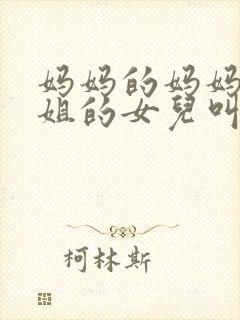 妈妈的妈妈
姐的女兒叫
柯林斯